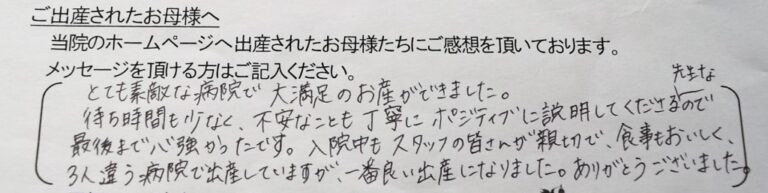 ご出産されたお母様へ
当院のホームページへ出産されたお母様たちにご感想を頂いております。
メッセージを頂ける方はご記入ください。
先生な
とても素敵な病院で大満足のお産ができました。
待ち時間も少なく、不安なことも丁寧にポジティブに説明してくださるので
最後まで心強かったです。入院中もスタッフの皆さんが親切で、食事もおいしく、
3人違う病院で出産していますが、一番良い出産になりました。ありがとうございました。